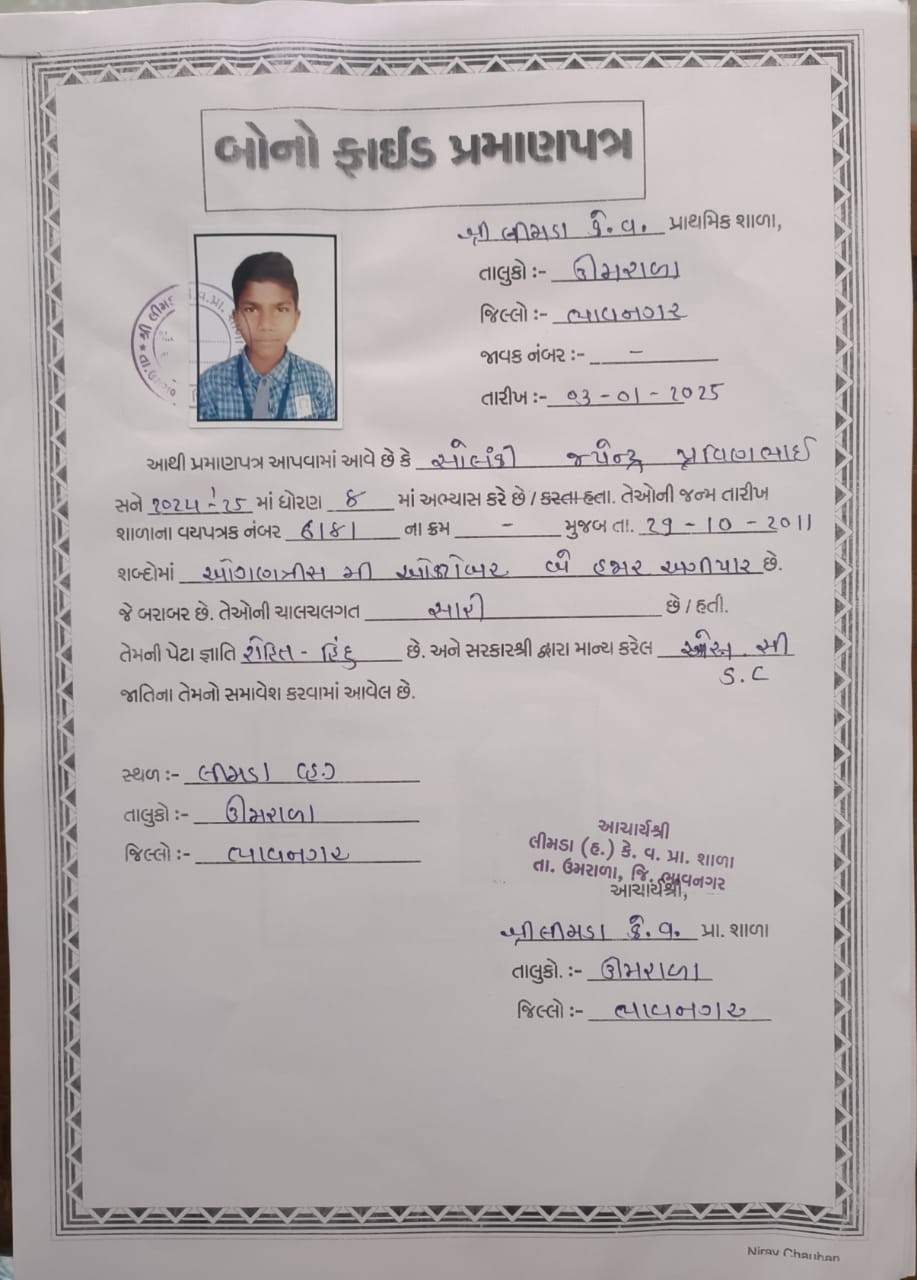 બોનો ફાઈડ પ્રમાણપત્ર
શ્રી લીમડા કે. વ. પ્રાથમિક શાળા,
તાલુકો :- ઊમરાળા
જિલ્લો :- ભાવનગર
જાવક નંબર :- –
તારીખ :- 03-01-2025
આથી પ્રમાણપત્ર આપવામાં આવે છે કે સોલંકી જયેન્દ્ર પ્રવિણભાઈ
સને ૨૦૨૪-'૨૫ માં ધોરણ ૮ માં અભ્યાસ કરે છે / કરતા હતા. તેઓની જન્મ તારીખ
શાળાના વયપત્રક નંબર ના ક્રમ - મુજબ તા. 29-10-2011
શબ્દોમાં ઓગણત્રીસ મી ઓક્ટોબર બે હજાર અગીયાર છે.
જે બરાબર છે. તેઓની ચાલચલગત સારી છે / હતી.
તેમની પેટા જ્ઞાતિ રોહિત - હિંદુ છે. અને સરકારશ્રી દ્વારા માન્ય કરેલ એસ. સી
S.C
જાતિના તેમનો સમાવેશ કરવામાં આવેલ છે.
સ્થળ :- લીમડા (હ.)
તાલુકો :- ઊમરાળા
જિલ્લો :- ભાવનગર
આચાર્યશ્રી
લીમડા (હ.) કે. વ. પ્રા. શાળા
તા. ઉમરાળા, જિ. ભાવનગર
આચાર્યશ્રી,
શ્રી લીમડા કે. વ. પ્રા. શાળા
તાલુકો. :- ઊમરાળા
જિલ્લો :- ભાવનગર
Nirav Chauhan